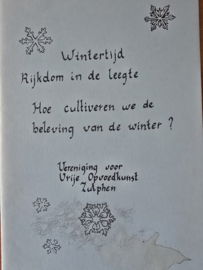 Wintertijd
Rijkdom in de leegte
Hoe cultiveren we de
beleving van de winter ?
Vereniging voor
Vrije Opvoedkunst
Zutphen